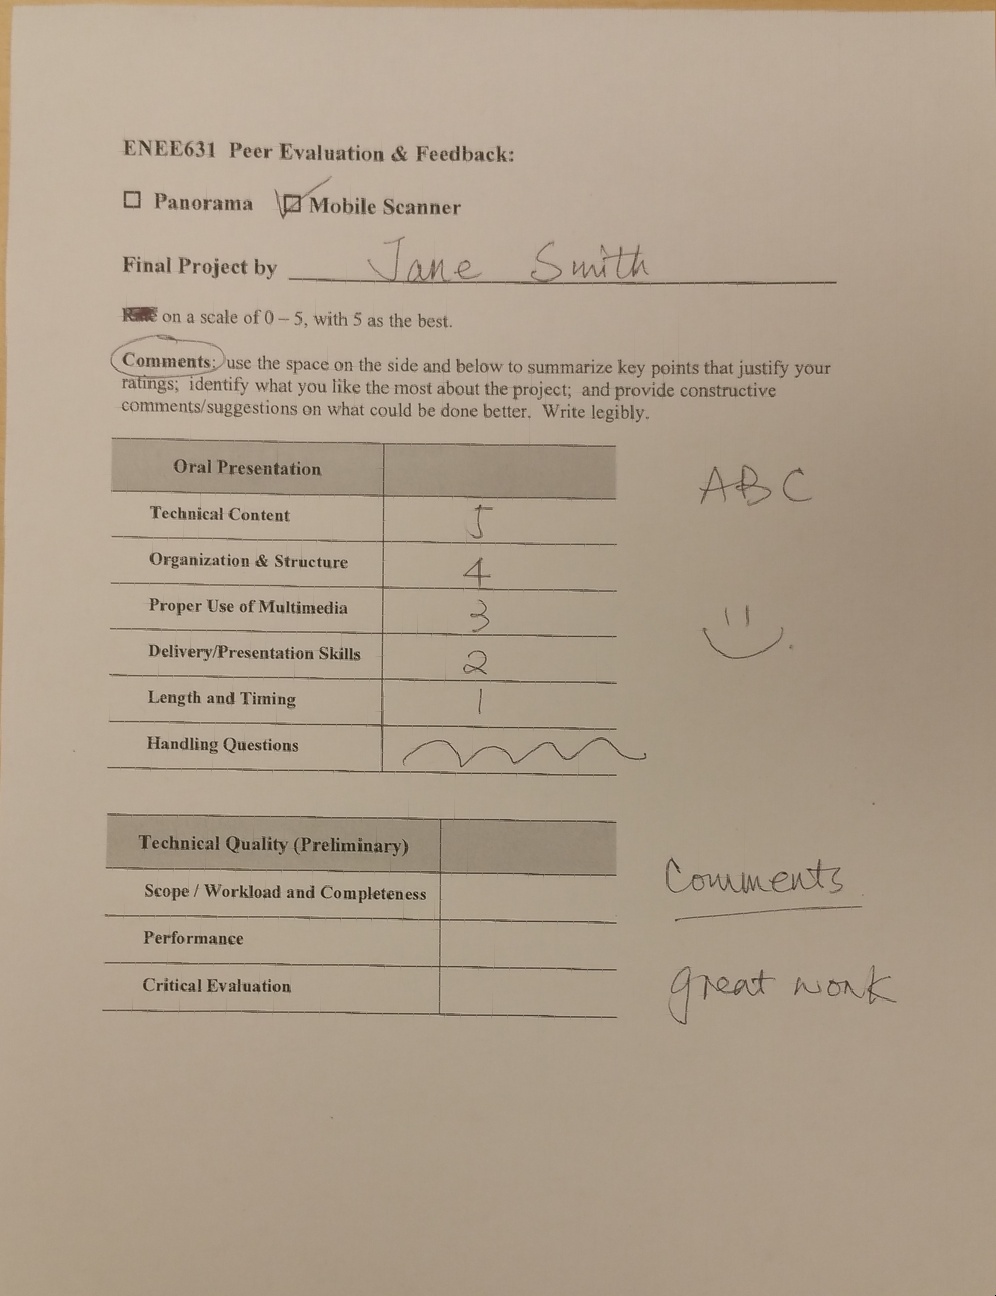 ENEE631 Peer Evaluation & Feedback:
Panorama Mobile Scanner
Final Project by Jane Smith
on a scale of 0 – 5, with 5 as the best.
Comments: use the space on the side and below to summarize key points that justify your
ratings; identify what you like the most about the project; and provide constructive
comments/suggestions on what could be done better. Write legibly.
Oral Presentation
ABC
Technical Content 5
Organization & Structure 4
Proper Use of Multimedia 3
Delivery/Presentation Skills 2
Length and Timing 1
Handling Questions
Technical Quality (Preliminary)
Comments
Scope / Workload and Completeness
Performance
Critical Evaluation
great work